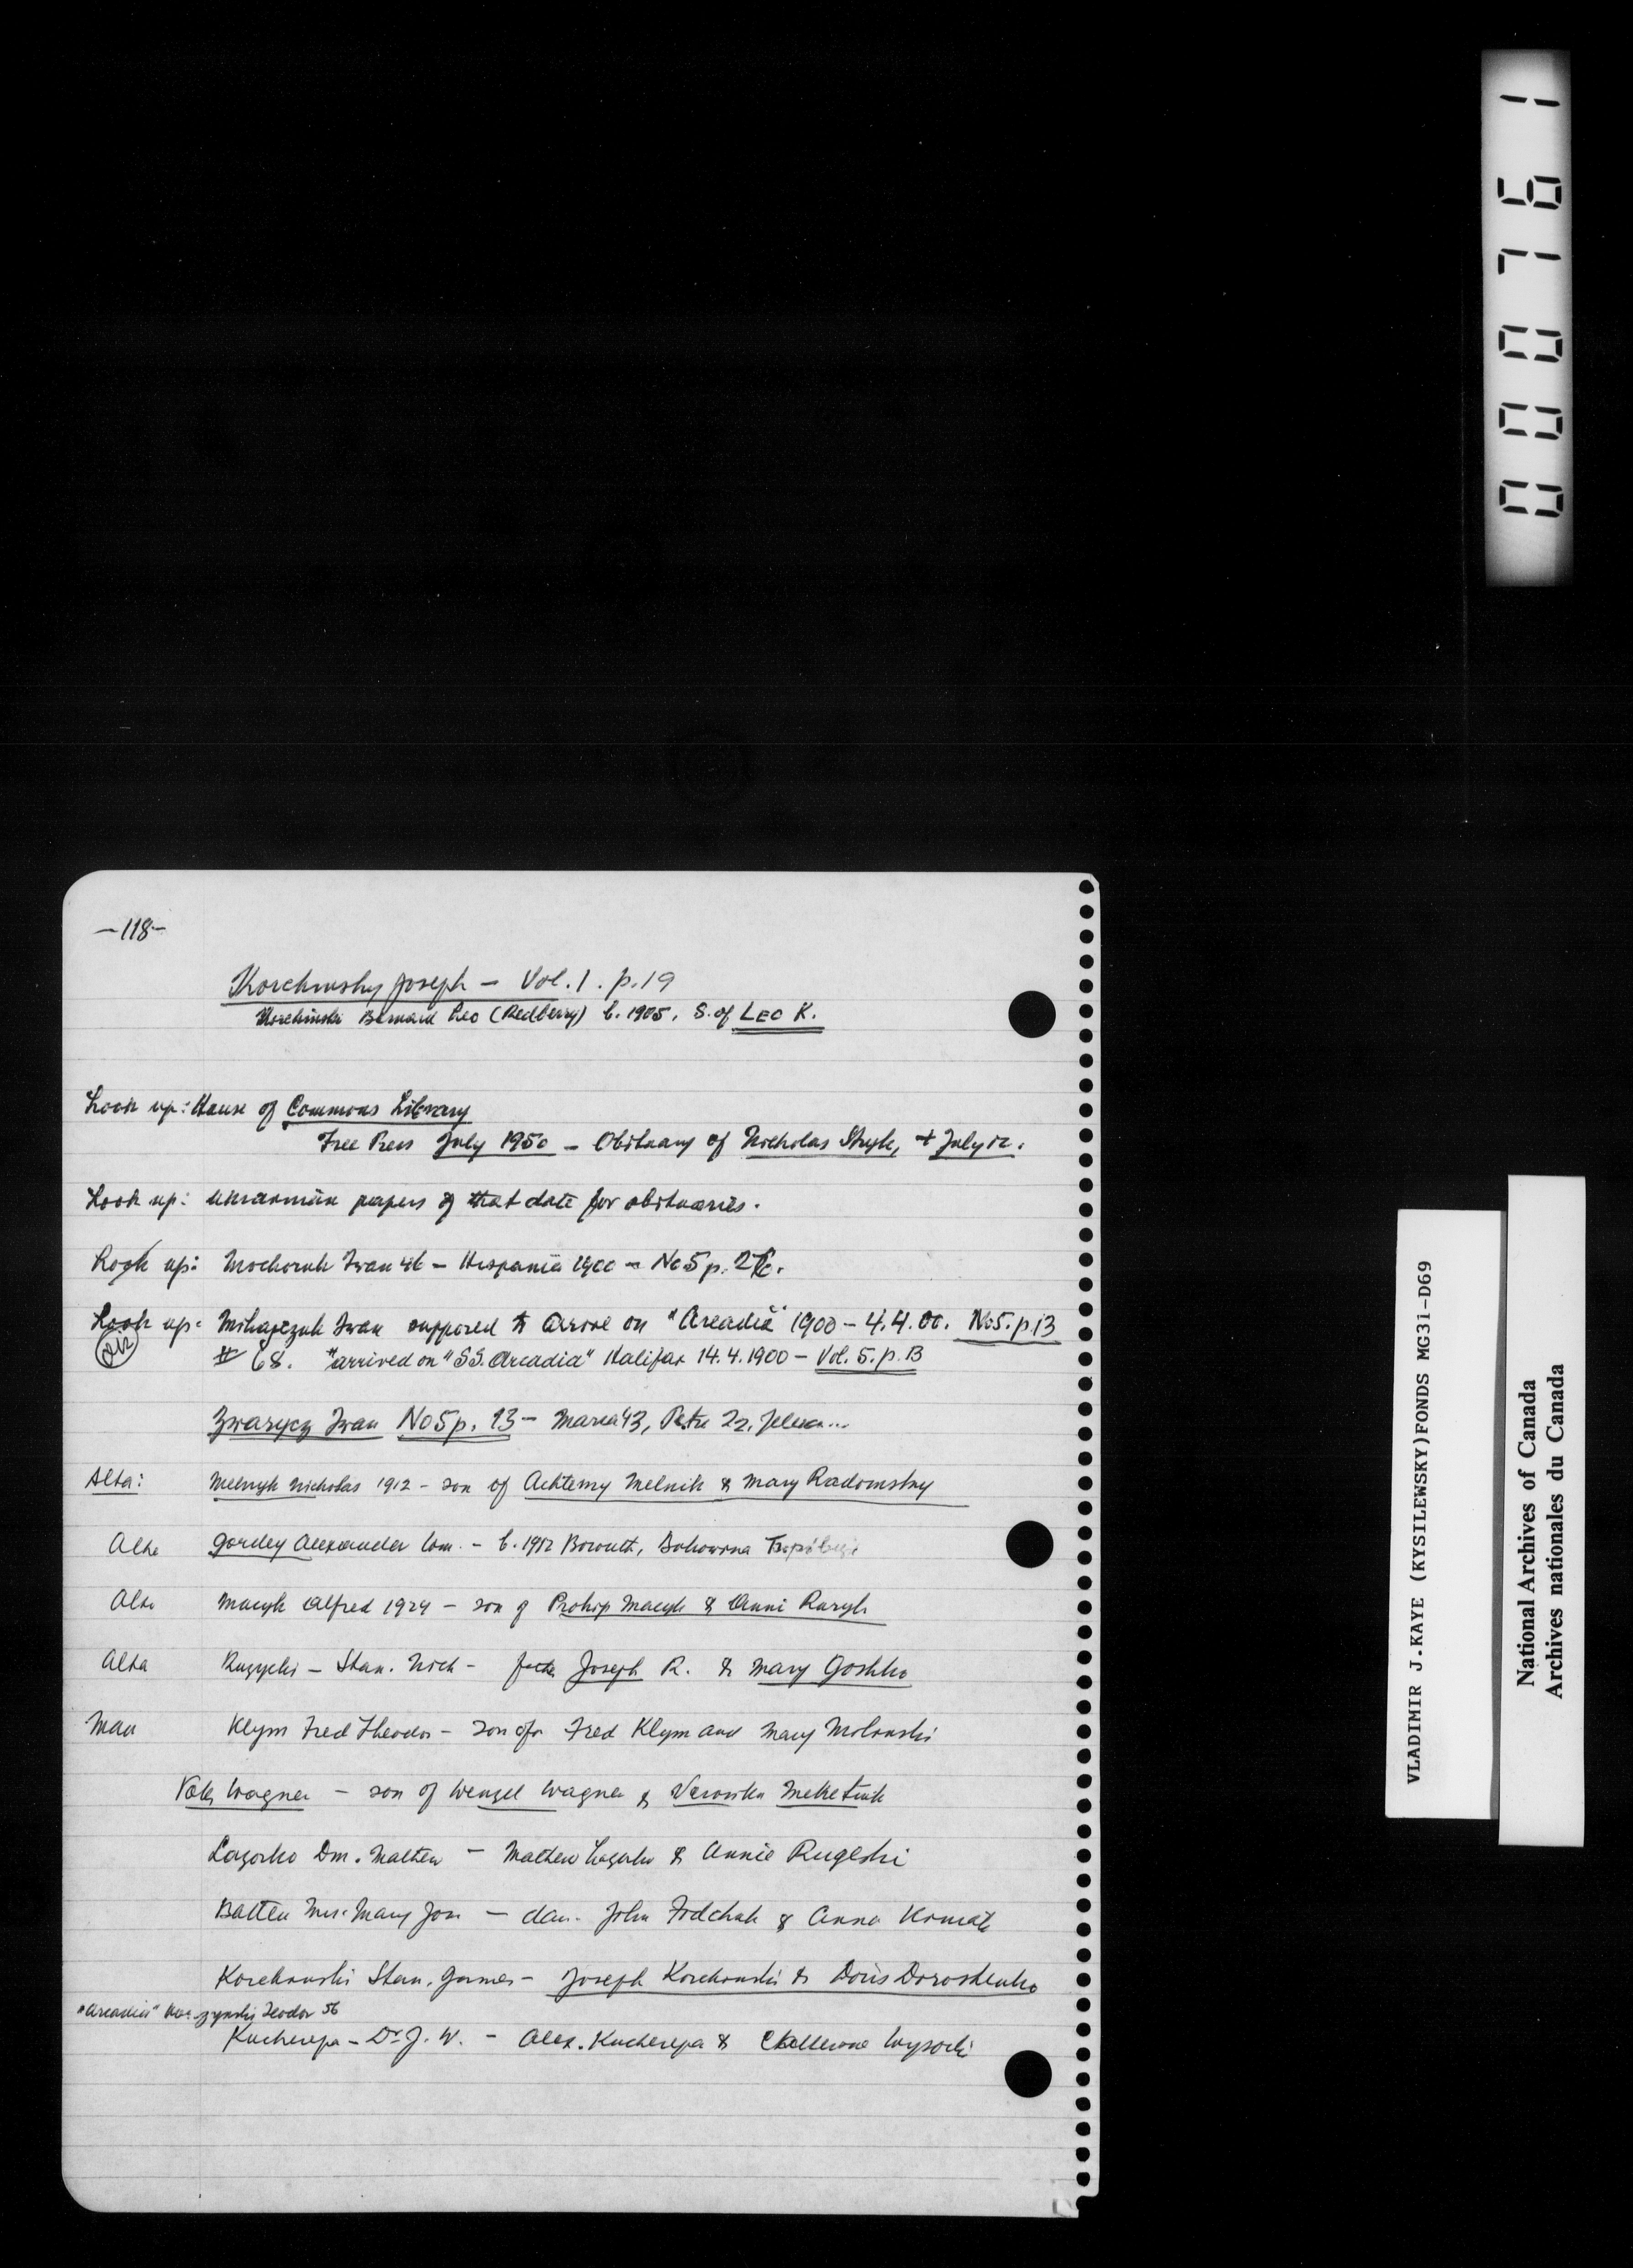 -118-
Korchinsky Joseph - Vol. 1. p. 19
Korchinski Bernard Leo (Redberry) b. 1905. S. of LEO K.
Look up: House of Commons Library
Free Press July 1950 - Obituary of Nicholas Stryk, + July 12.
Look up: Ukrainian papers of that date for obituaries.
Look up: Mochoruk Iwan 46 - Hispania 1900 - No 5 p.
Look up: Mihajczuk Iwan supposed to arrive on "Arcadia" 1900 - 4.4.00. No 5. p. 13
# 68. "arrived on "SS. Arcadia" Halifax 14.4.1900 - Vol. 5. p. 13
Zwarycz Iwan No 5 p. 13 - Maria 43, Petro 22, Jelena...
Alta: Melnyk Nicholas 1912 - son of Achtemy Melnik & Mary Radomsky
Alta Gordey Alexander - b. 1912
Alta Macyk Alfred 1924 - son of Prokip Macyk & Anni Ruryk
Alta Ruzycki - Stan. Nich - father Joseph R. & Mary Goshko
Man Klym Fred Theodor - son of Fred Klym and Mary Molanski
Wagner - son of Wenzel Wagner & Veronika Meketiuk
Lazorko Dm. Mathew - Mathew Lazorko & Annie Rugeski
Batten Mrs. Mary Jos - dau. John Fodchuk & Anna
Korchynski Stan. James - Joseph Korchynski & Doris Doroshenko
"Arcadia" Teodor 56
Kucherepa - Dr. J. W. - Alex. Kucherepa & Wysocki
000761
VLADIMIR J.KAYE (KYSILEWSKY)FONDS MG31-D69
National Archives of Canada
Archives nationales du Canada